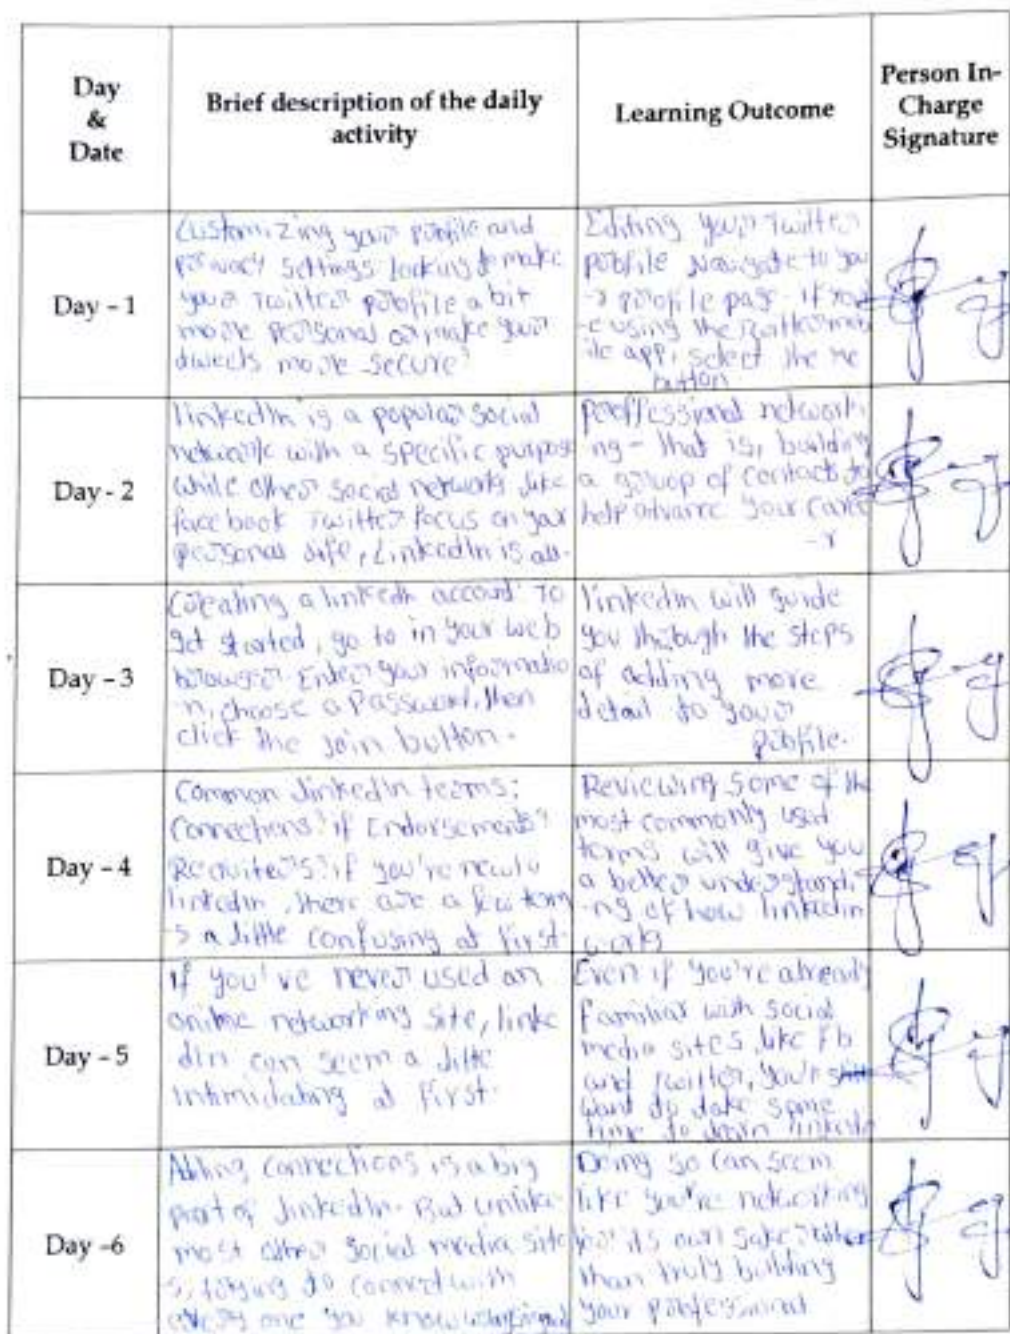 Day
&
Date
Brief description of the daily
activity
Learning Outcome
Person In-
Charge
Signature
Day - 1
Customizing your profile and
privacy settings looking to make
your Twitter profile a bit
more personal or make your
more secure?
Editing your Twitter
profile Navigate to you
-r profile page. If you
-e using the Twitter mob
ile app, select the me
button.
Day - 2
linkedIn is a popular social
network with a specific purpose
while other social network like
facebook Twitter focus on your
personal life, LinkedIn is all.
proffessional network
ing - that is, building
a group of contacts to
help advance your caree
-r
Day - 3
Creating a linkedIn account: To
get started, go to in your web
browser. Enter your informatio
n, choose a Password, then
click the Join button.
linkedin will guide
you through the steps
of adding more
detail to your
profile.
Day - 4
Common linkedin terms:
Connections? if Endorsements?
if you're new to
linkedin, there are a few term
-s a little confusing at first.
Reviewing some of the
most commonly used
terms will give you
a better understandi
-ng of how linkedin
works
Day - 5
if you've never used an
online networking site, linke
din can seem a
intimidating at first.
Even if you're already
familiar with social
media sites, like Fb
and Twitter, you'll still
want to take some
time to
Day -6
Adding connections is a big
part of linkedIn. But unlike
most other social media site
s, trying to connect with
every one you know
Doing so can seem
like you're networking
for its own sake rather
than truly building
your professional